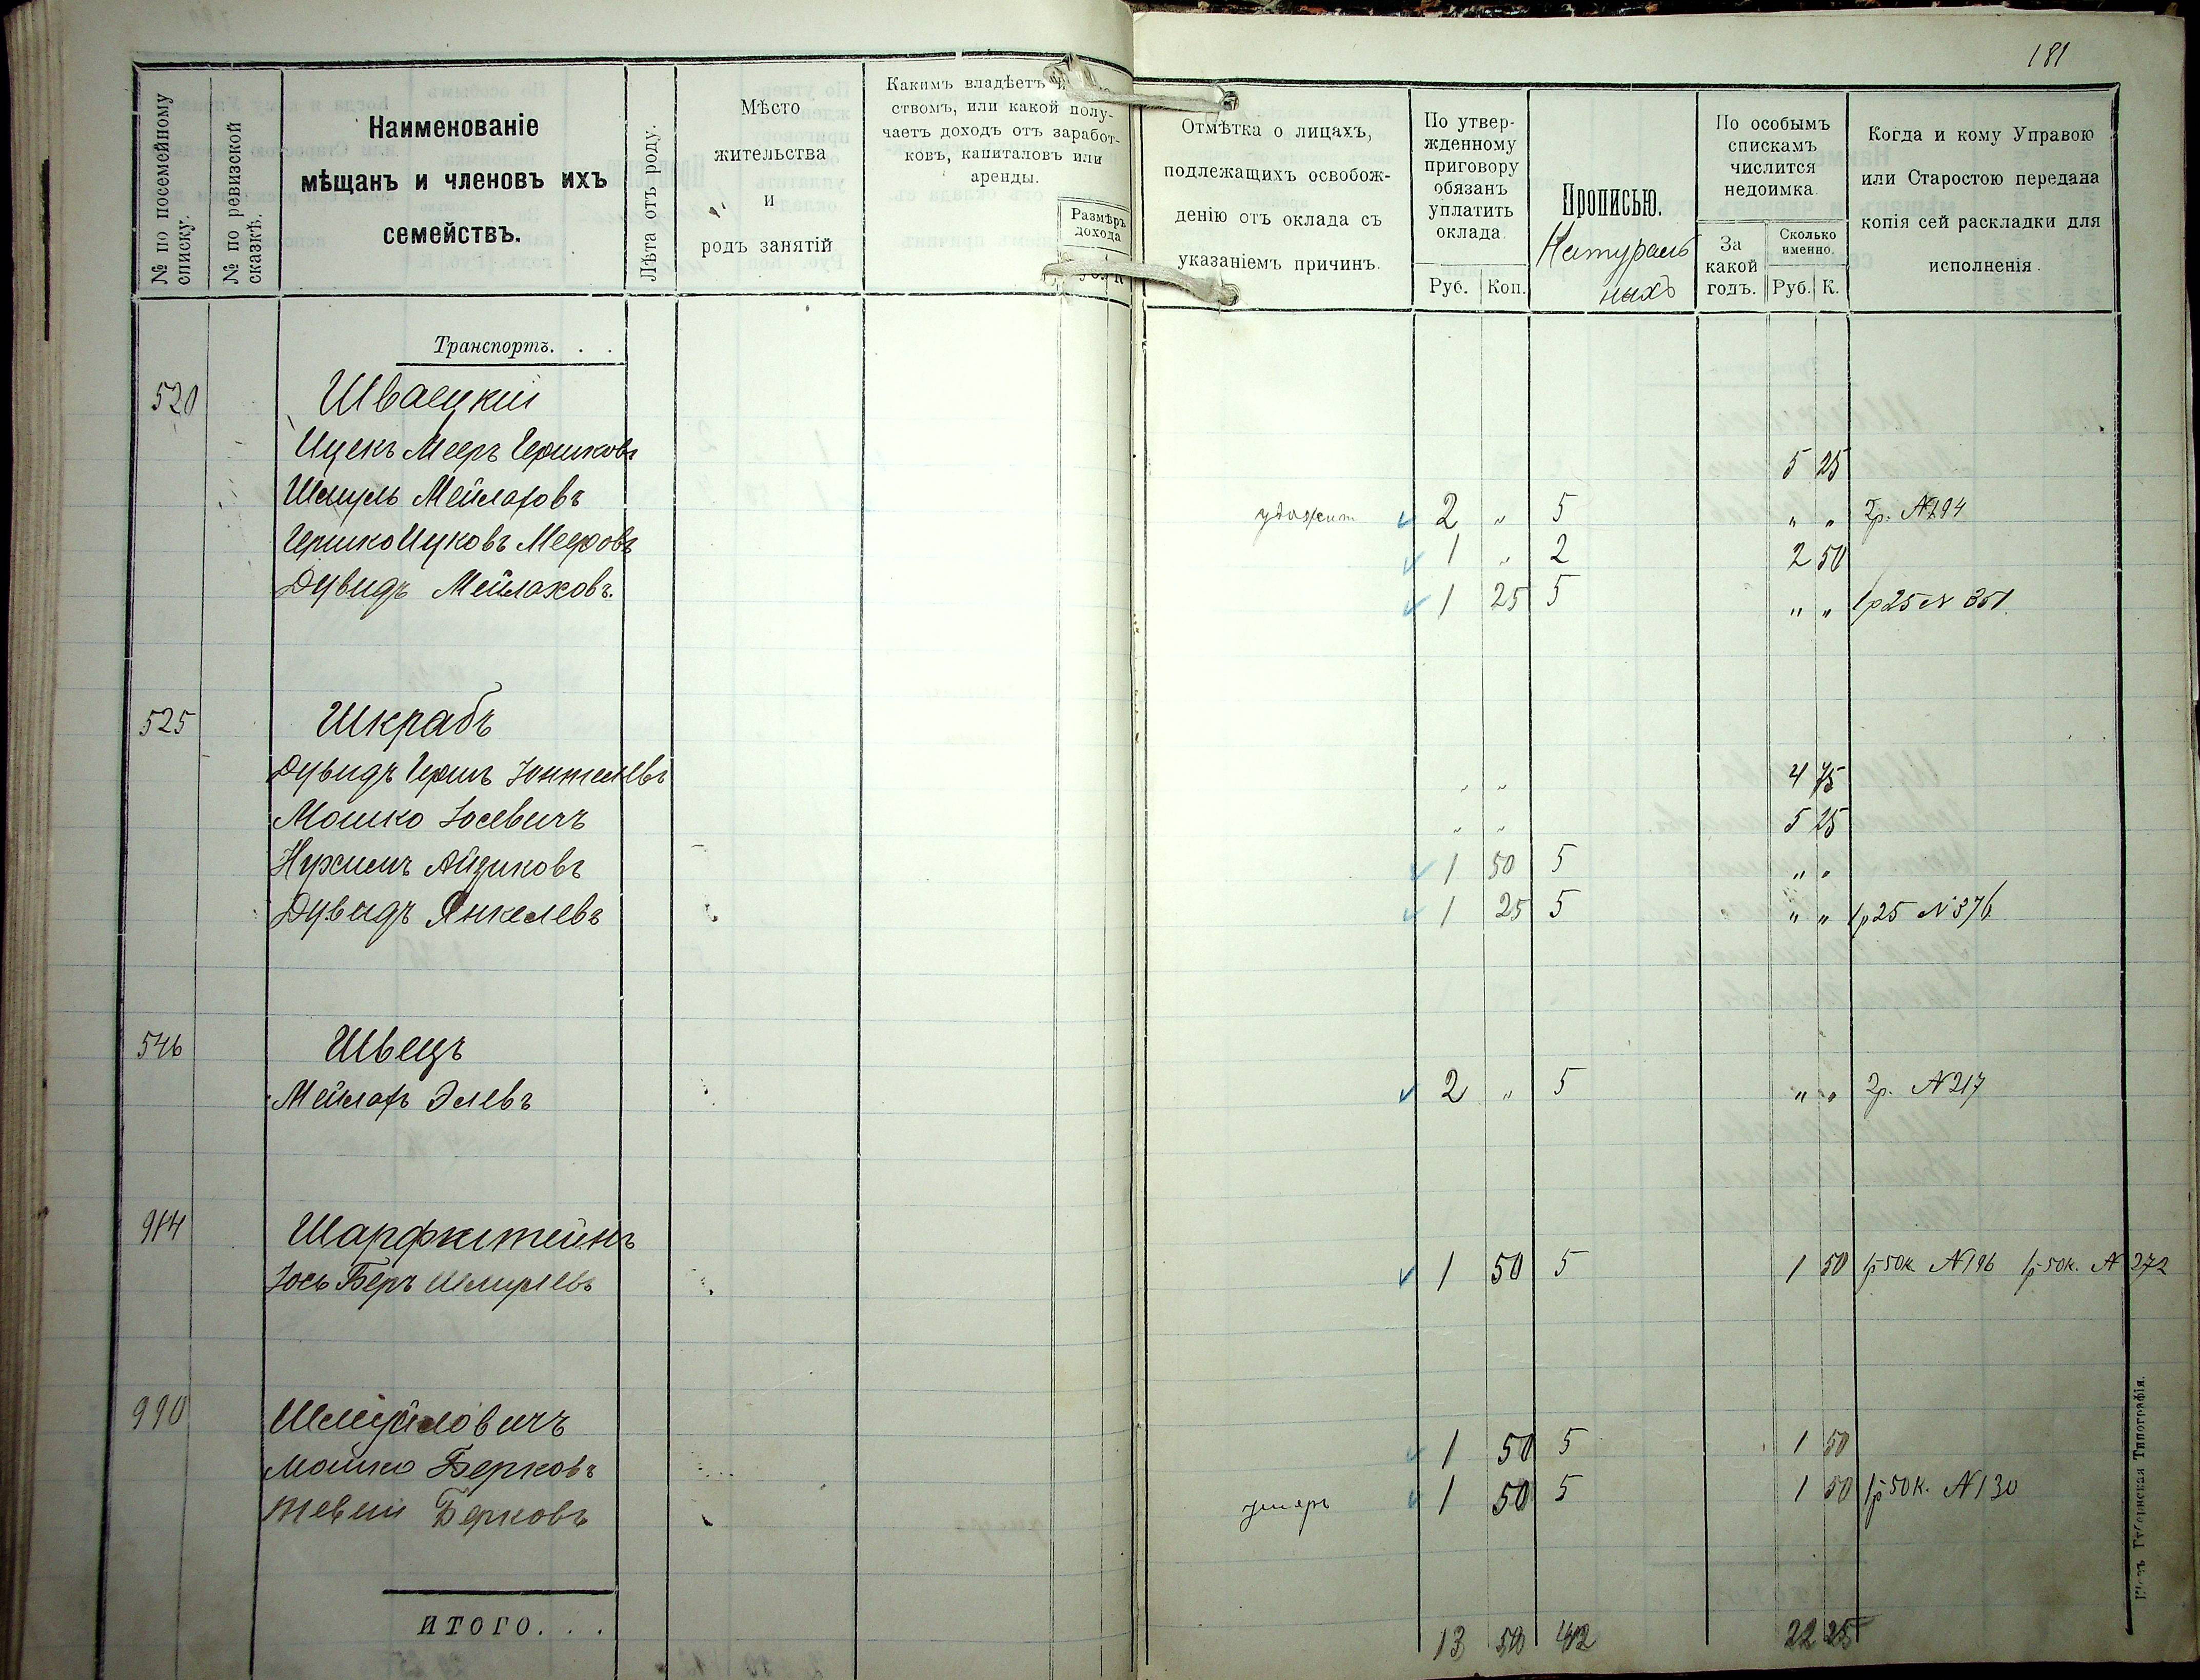 181
№ по посемейному списку.
№ по ревизской сказкѣ.
Наименованіе
мѣщанъ и членовъ ихъ
семействъ.
Лѣта отъ роду.
Мѣсто
жительства
и
родъ занятій
Какимъ владѣетъ
ствомъ, или какой полу-
чаетъ доходъ отъ заработ-
ковъ, капиталовъ или
аренды.
Размѣръ
дохода
Отмѣтка о лицахъ,
подлежащихъ освобож-
денію отъ оклада съ
указаніемъ причинъ.
По утвер-
жденному
приговору
обязанъ
уплатить
оклада
Руб. Коп.
Прописью.
Натураль
ныхъ
По особымъ
спискамъ
числится
недоимка.
За
какой
годъ.
Сколько
именно.
Руб. К.
Когда и кому Управою
или Старостою передана
копія сей раскладки для
исполненія.
Транспортъ. . .
520 Швацкій
Ицекъ Мееръ Гершковъ 5 25
Шмуль Мейлаховъ 2 „ 5 „ „ 2р. №194
Гершко Ицковъ Мееровъ 1 „ 2 2 50
Дувидъ Мейлаховъ. 1 25 5 „ „ 1р25 № 351.
525 Шкрабъ
Дувидъ Гершъ „ „ 4 75
Мошко Іосевичъ „ „ 5 25
Нухимъ Айзиковъ 1 50 5 „ „
Дувидъ Янкелевъ 1 25 5 „ „ 1р25 №376
546 Швецъ
Мейлахъ Элевъ 2 „ 5 „ „ 2р. №217
984 Шарфштейнъ
Іось Беръ Шмулевъ 1 50 5 1 50 1р50к №196 1р50к. № 272
990 Шмуйловичъ
Мошко Берковъ 1 50 5 1 50
Тевій Берковъ умеръ 1 50 5 1 50 1р50к. №130
ИТОГО. . .
13 50 42 22 25
Губернская Типографія.